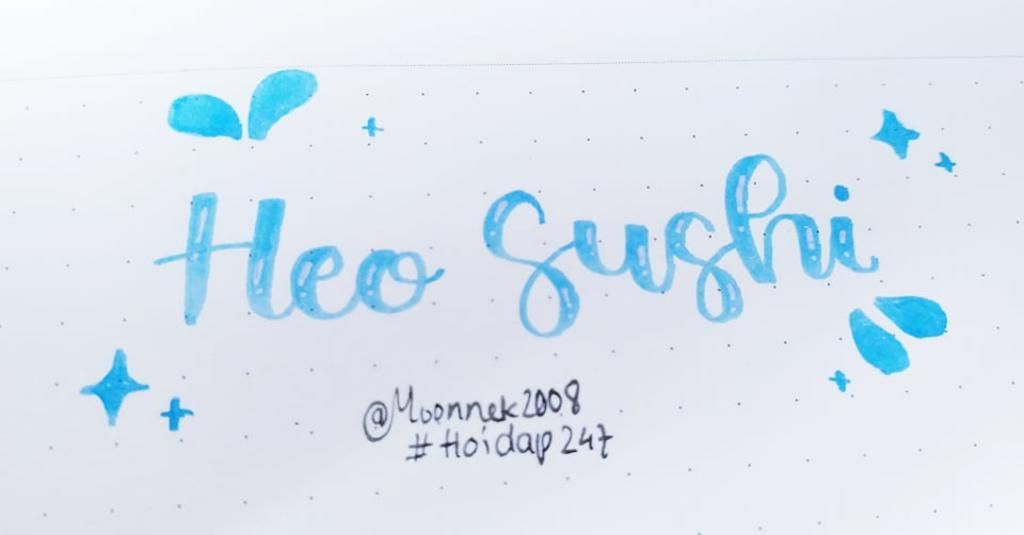 Heo Sushi
@Moonnek2008
#Hoidap247